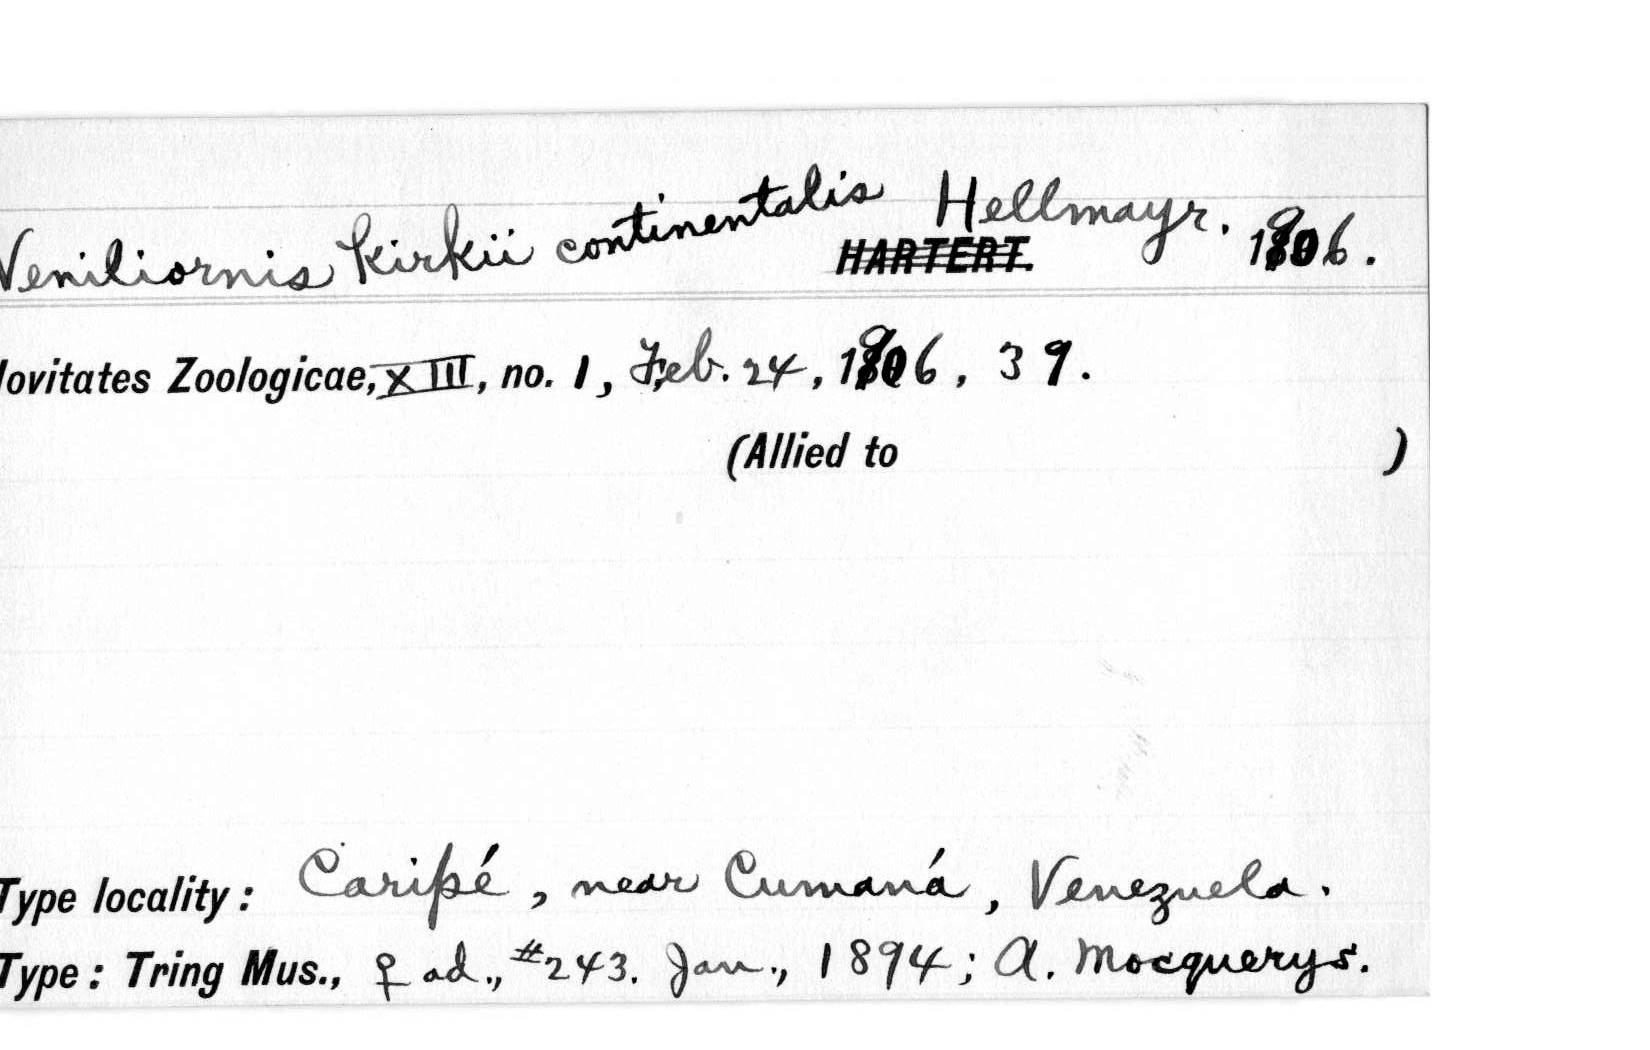 Veniliornis kirkii continentalis Hellmayr. 1906.
HARTERT.
ovitates Zoologicae, XIII, no. 1, Feb. 24, 1906, 39.
(Allied to )
Type locality: Caripé, near Cumaná, Venezuela.
Type: Tring Mus., ♀ ad., #243. Jan., 1894; A. Mocquerys.